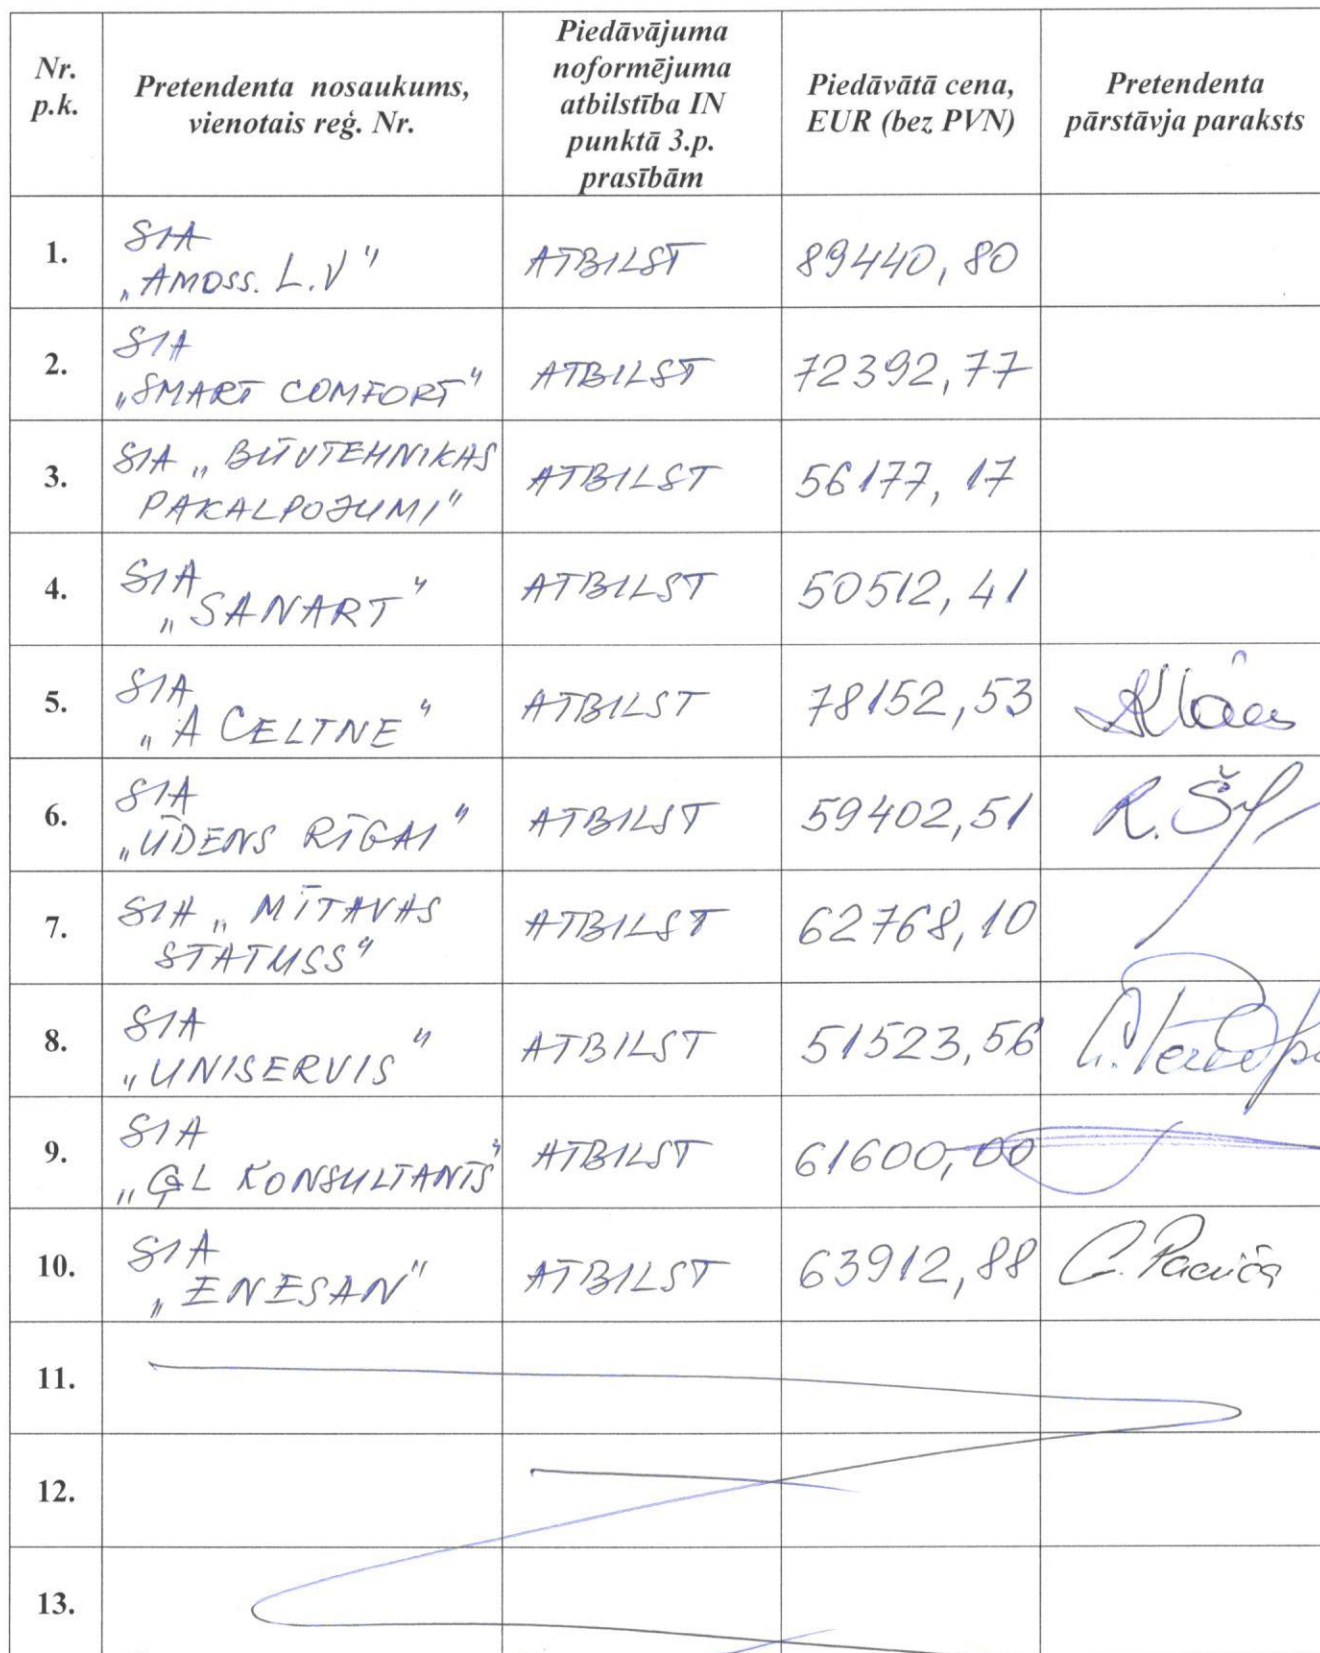 Nr. p.k.
Pretendenta nosaukums,
vienotais reģ. Nr.
Piedāvājuma
noformējuma
atbilstība IN
punktā 3.p.
prasībām
Piedāvātā cena,
EUR (bez PVN)
Pretendenta
pārstāvja paraksts
1.
SIA
„AMOSS. L.V"
ATBILST
89440,80
2.
SIA
„SMART COMFORT"
ATBILST
72392,77
3.
SIA „BŪVTEHNIKAS
PAKALPOJUMI"
ATBILST
56177,17
4.
SIA
„SANART"
ATBILST
50512,41
5.
SIA
„A CELTNE"
ATBILST
78152,53
6.
SIA
„ŪDENS RĪGAI"
ATBILST
59402,51
R.
7.
SIA „MĪTAVAS
STATUSS"
ATBILST
62768,10
8.
SIA
„UNISERVIS"
ATBILST
51523,56
9.
SIA
„GL KONSULTANTS"
ATBILST
61600,00
10.
SIA
„ENESAN"
ATBILST
63912,88
11.
12.
13.